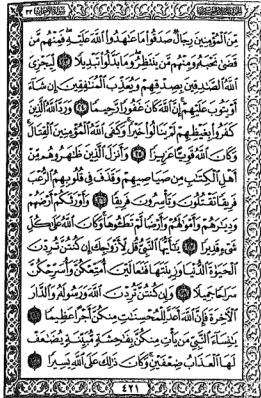 مِّنَ ٱلْمُؤْمِنِينَ رِجَالٌ صَدَقُوا۟ مَا عَـٰهَدُوا۟ ٱللَّهَ عَلَيْهِ فَمِنْهُم مَّن
قَضَىٰ نَحْبَهُۥ وَمِنْهُم مَّن يَنتَظِرُ وَمَا بَدَّلُوا۟ تَبْدِيلًا ٢٣ لِّيَجْزِىَ
ٱللَّهُ ٱلصَّـٰدِقِينَ بِصِدْقِهِمْ وَيُعَذِّبَ ٱلْمُنَـٰفِقِينَ إِن شَآءَ
أَوْ يَتُوبَ عَلَيْهِمْ إِنَّ ٱللَّهَ كَانَ غَفُورًا رَّحِيمًا ٢٤ وَرَدَّ ٱللَّهُ ٱلَّذِينَ
كَفَرُوا۟ بِغَيْظِهِمْ لَمْ يَنَالُوا۟ خَيْرًا وَكَفَى ٱللَّهُ ٱلْمُؤْمِنِينَ ٱلْقِتَالَ
وَكَانَ ٱللَّهُ قَوِيًّا عَزِيزًا ٢٥ وَأَنزَلَ ٱلَّذِينَ ظَـٰهَرُوهُم مِّنْ
أَهْلِ ٱلْكِتَـٰبِ مِن صَيَاصِيهِمْ وَقَذَفَ فِى قُلُوبِهِمُ ٱلرُّعْبَ
فَرِيقًا تَقْتُلُونَ وَتَأْسِرُونَ فَرِيقًا ٢٦ وَأَوْرَثَكُمْ أَرْضَهُمْ
وَدِيَـٰرَهُمْ وَأَمْوَٰلَهُمْ وَأَرْضًا لَّمْ تَطَـُٔوهَا وَكَانَ ٱللَّهُ عَلَىٰ كُلِّ
شَىْءٍ قَدِيرًا ٢٧ يَـٰٓأَيُّهَا ٱلنَّبِىُّ قُل لِّأَزْوَٰجِكَ إِن كُنتُنَّ تُرِدْنَ
ٱلْحَيَوٰةَ ٱلدُّنْيَا وَزِينَتَهَا فَتَعَالَيْنَ أُمَتِّعْكُنَّ وَأُسَرِّحْكُنَّ
سَرَاحًا جَمِيلًا ٢٨ وَإِن كُنتُنَّ تُرِدْنَ ٱللَّهَ وَرَسُولَهُۥ وَٱلدَّارَ
ٱلْـَٔاخِرَةَ فَإِنَّ ٱللَّهَ أَعَدَّ لِلْمُحْسِنَـٰتِ مِنكُنَّ أَجْرًا عَظِيمًا ٢٩
يَـٰنِسَآءَ ٱلنَّبِىِّ مَن يَأْتِ مِنكُنَّ بِفَـٰحِشَةٍ مُّبَيِّنَةٍ يُضَـٰعَفْ
لَهَا ٱلْعَذَابُ ضِعْفَيْنِ وَكَانَ ذَٰلِكَ عَلَى ٱللَّهِ يَسِيرًا ٣٠
٤٢١